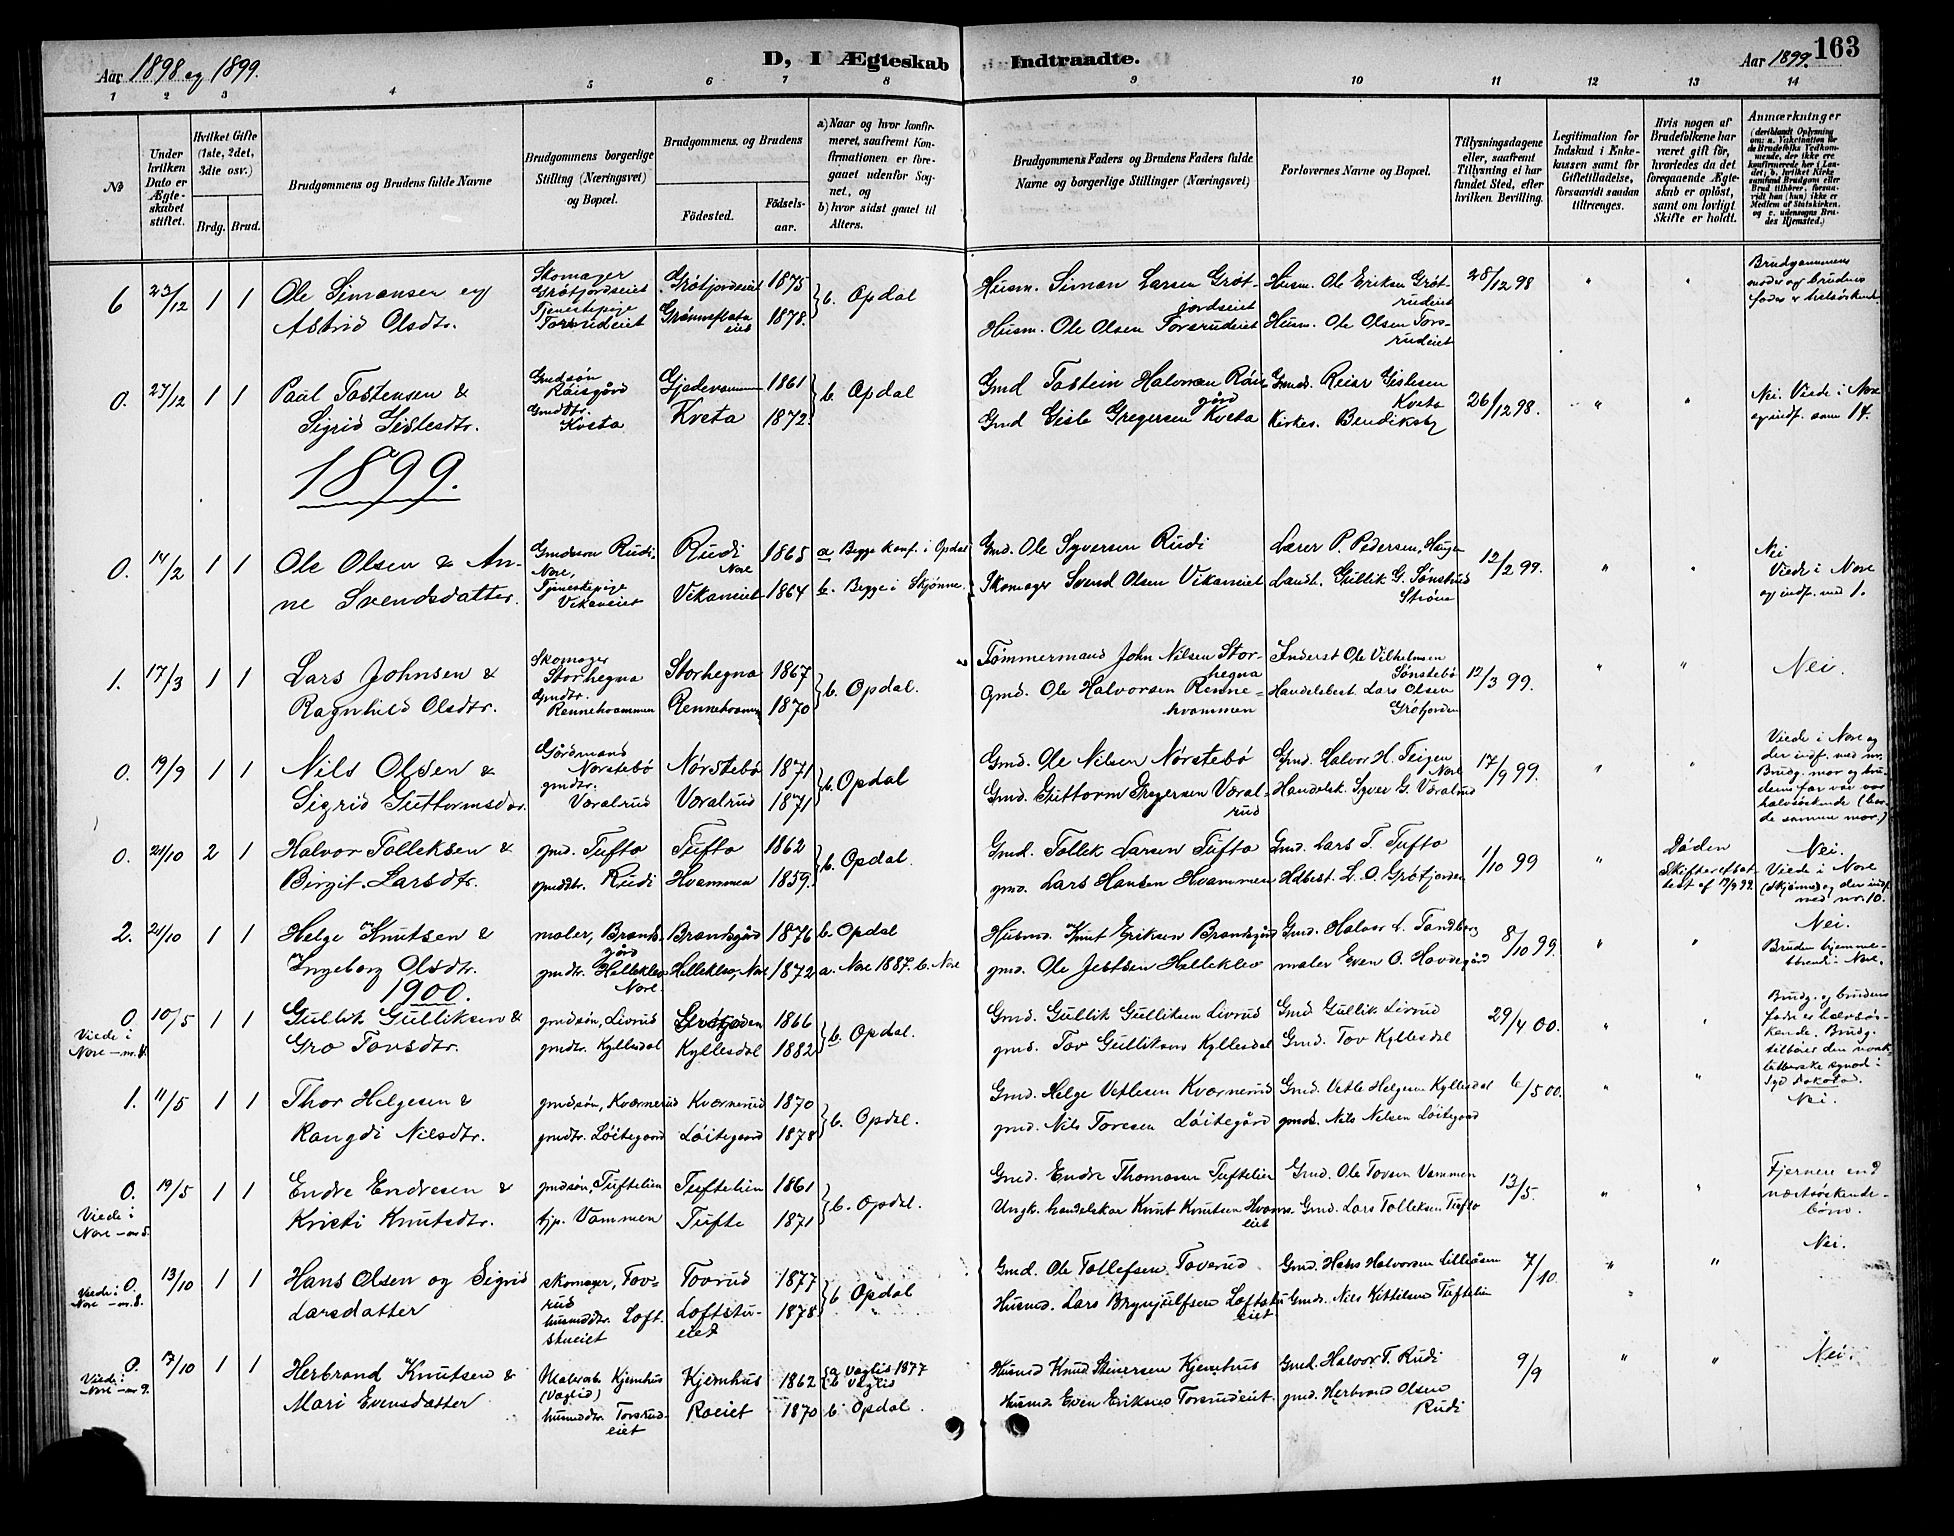 Aar 1898 og 1899.
D, I Ægteskab Indtraadte.
Aar 1899. 163
1 2 3 4 5 6 7 8 9 10 11 12 13 14
No
Under hvilken Dato er Ægteskabet stiftet.
Hvilket Gifte (1ste, 2det, 3die osv.)
Brdg. Brud.
Brudgommens og Brudens fulde Navne
Brudgommens borgerlige Stilling (Næringsvei) og Bopæl.
Brudgommens og Brudens
Fødested. Fødselsaar.
a) Naar og hvor konfirmeret, saafremt Konfirmationen er foregaaet udenfor Sognet, og
b) hvor sidst gaaet til Alters.
Brudgommens Faders og Brudens Faders fulde Navne og borgerlige Stillinger (Næringsvei)
Forlovernes Navne og Bopæl.
Tillysningsdagene eller, saafremt Tillysning ei har fundet Sted, efter hvilken Bevilling.
Legitimation for Indskud i Enkekassen samt for Giftetilladelse, forsaavidt saadan tiltrænges.
Hvis nogen af Brudefolkene har været gift før, hvorledes da det foregaaende Ægteskab er opløst, samt om lovligt Skifte er holdt.
Anmærkninger
6 23/12 1 1 Ole Simonsen og
Astrid Olsdtr.
Skomager
Grøtjordseiet
Tjenestepige
Torsrudeiet
Grøtjordseiet 1875
1878.
b. Opdal
Husm. Simon Larsen Grøtjordseiet
Husm. Ole Olsen Torsrudeiet
Husm. Ole Eriksen Grøtrudeiet
Husm. Ole Olsen Torsrudeiet
28/12 98 " "
Brudgommens moder og brudens fader er helsøskende
0. 27/12 1 1 Paul Tostensen &
Sigrid Gislesdtr.
Gmdsøn
Råisgård
Gmdtr.
Kveta
Gjedevammen 1861
Kveta 1872.
b. Opdal
Gmd Tostein Halvorsen Råisgård
Gmd Gisle Gregersen Kveta
Gmd. Reiar Gislesen Kveta
Kirkes. Bendiksby
26/12 98. " "
Nei. Viede i Nore og indf. som 14.
1899.
0. 14/2 1 1 Ole Olsen & Anne Svendsdatter.
Gmdsøn Rudi
Nore,
Tjenestepige
Vikaneiet
Rudi Nore 1865
Vikaneiet 1864
a Begge konf. i Opdal
b. Begge i Skjønne.
Gmd. Ole Syversen Rudi
Skomager Svend Olsen Vikaneiet
Lærer P. Pedersen, Hauge
Landh. Gullik G. Sønstrud Strøm
12/2 99. " "
Nei
Viede i Nore og indf. med 1.
1. 17/3 1 1 Lars Johnsen &
Ragnhild Olsdtr.
Skomager
Storhegna
Gmdtr.
Rennehvammen
Storhegna 1867
Rennehvammen 1870
b. Opdal.
Tømmermand John Nilsen Storhegna
Gmd. Ole Halvorsen Rennehvammen
Inderst Ole Vilhelmsen Sønstebø
Handelsbest. Lars Olsen Grøtjorden
12/3 99. " "
Nei.
0. 19/9 1 1 Nils Olsen &
Sigrid Guttormsdtr.
Gårdmand
Nørstebø
gmdtr.
Væralrud
Nørstebø 1871
Væralrud 1871
b. Opdal
Gmd. Ole Nilsen Nørstebø
Gmd. Guttorm Gregersen Væralrud
Gmd. Halvor H. Teigen Nore
Handelsk. Syver G. Væralrud
17/9 99. " "
Viede i Nore og der indf. ved nr.
Brudg. mor og brudens far var var halvsøskende (havde samme mor.)
0. 21/10 2 1 Halvor Tolleksen &
Birgit Larsdtr.
gmd. Tufto
gmddtr. Rudi
Tufto 1862
Hvammen 1859.
b. Opdal.
Gmd. Tollik Larsen Tufto
gmd. Lars Hansen Hvammen
Gmd. Lars T. Tufto
Hdbest. L. O. Grøtjorden
1/10 99 "
Døden
Skifteretsattest af 19/9 99
Nei.
Viede i Nore (Skjønne) og der indf. med nr. 10.
2. 21/10 1 1 Helge Knutsen &
Ingeborg Olsdtr.
maler, Brandsgård
gmdtr. Helleklev, Nore
Brandsgård 1876
Helleklev, Nore 1872
b. Opdal
a. Nore 1887. b. Nore
Husmd. Knut Eriksen Brandsgård
gmd. Ole Jestsen Helleklev
Gmd. Halvor L. Tandberg
maler Even O. Hovdegård
8/10 99. " "
Nei.
Bruden hjemmehørende i Nore.
1900.
0. 10/5 1 1 Gullik Gulliksen &
Viede i Nore – nr. 4.
Gro Torsdtr.
gmdsøn, Livrud
gmdtr. Kyllesdal
Grøtjorden 1866
Kyllesdal 1882
b. Opdal.
Gmd. Gullik Gulliksen Livrud
gmd. Tov Gulliksen Kyllesdal
Gmd. Gullik Livrud
Gmd. Tov Kyllesdal
29/4 00. " "
Brudg. og brudens fader er halvsøskende. Brudg. tilhører den norsk-lutherske synod i Syd Dakota.
1. 11/5 1 1 Thor Helgesen &
Rangdi Nilsdtr.
gmdsøn, Kværnerud
gmdtr. Løitegaard
Kværnerud 1870
Løitegaard 1878
b. Opdal.
Gmd. Helge Vetlesen Kværnerud
gmd. Nils Toresen Løitegård
Gmd. Vetle Helgesen Kyllesdal
gmd. Nils Nilsen Løitegaard
6/5 00. " "
Nei.
0. 19/5 1 1 Endre Endresen &
Viede i Nore – nr 5.
Kristi Knutsdtr.
gmdsøn, Tuftelien
tjp. Vammen
Tuftelien 1861
Tufte 1871
b. Opdal.
Gmd. Endre Thomasen Tuftelien
Ungk. handelskar Knut Knutsen Hvammseiet
Gmd. Ole Torsen Vammen
Gmd. Lars Tolleksen Tufto
13/5. " "
Fjernere end næstsøskendebørn.
0. 13/10 1 1 Hans Olsen og Sigrid
Viede i Nore – nr. 8.
Larsdatter
skomager, Tovrud
husmddtr. Loftstueiet
Tovrud 1877
Loftstueiet 1878
b Opdal
Gmd. Ole Tollefsen Toverud
Husmd. Lars Brynjulfsen Loftstueiet
Gmd. Hans Halvorsen Lilleåsen
Gmd. Nils Kittilsen Tuftelin
7/10. " "
Nei.
0. 17/10 1 1 Herbrand Knutsen &
Viede i Nore – nr 9.
Mari Evensdatter
Kjemhus (Vaglid)
husmddtr. Torsrudeiet
Kjemhus 1862
Roeiet 1870
a Vaglid 1877
b Vaglid
b Opdal.
Husmd Knud Steinersen Kjemhus
Husmd. Even Eriksen Torsrudeiet
gmd. Halvor T. Rudi
gmd. Herbrand Olsen Rudi
9/9 " "
Nei.